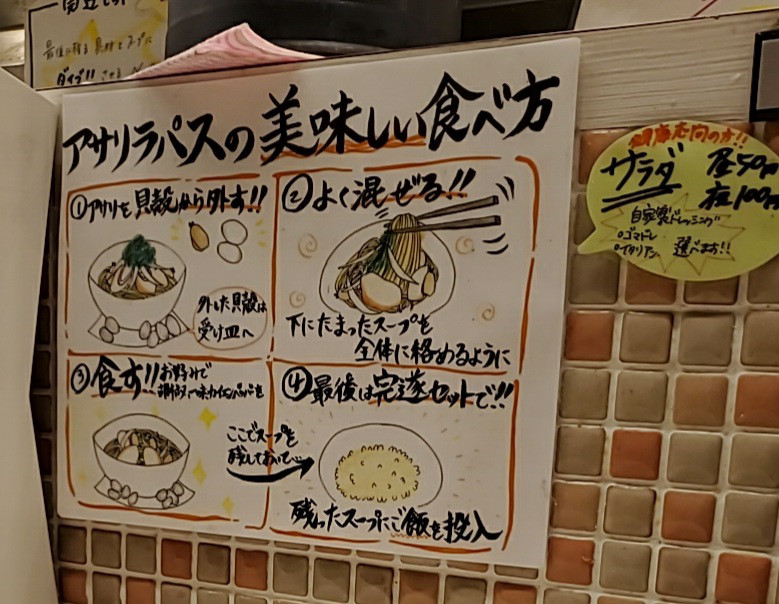 最後に残る具材とスープに
ダイブ!!させる
アサリラパスの美味しい食べ方
①アサリを貝殻から外す!!
外した貝殻は
受け皿へ
②よく混ぜる!!
下にたまったスープを
全体に絡めるように
③食す!!お好みで
ここでスープを
残しておいて…
④最後は完遂セットで!!
残ったスープにご飯を投入
健康志向の方!!
サラダ 昼50円
夜100円
自家製ドレッシング
○ゴマドレ
○イタリアン 選べます!!